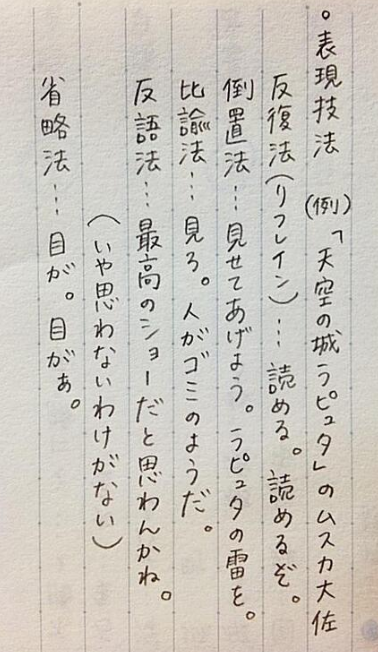 。表現技法 (例)「天空の城ラピュタ」のムスカ大佐
反復法(リフレイン)…読める。読めるぞ。
倒置法…見せてあげよう。ラピュタの雷を。
比諭法…見ろ。人がゴミのようだ。
反語法…最高のショーだと思わんかね。
(いや思わないわけがない)
省略法…目が。目がぁ。